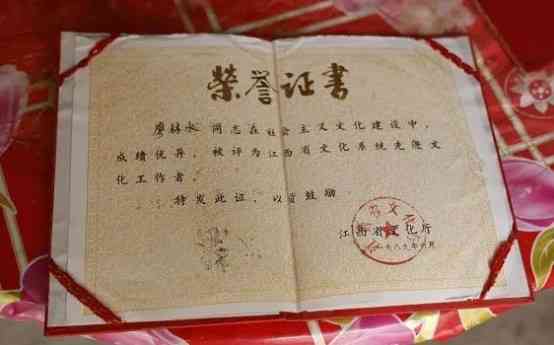 荣誉证书
廖林水 同志在社会主义文化建设中，
成绩优异，被评为江西省文化系统先进文
化工作者。
特发此证，以资鼓励
江西省文化厅
一九八九年六月